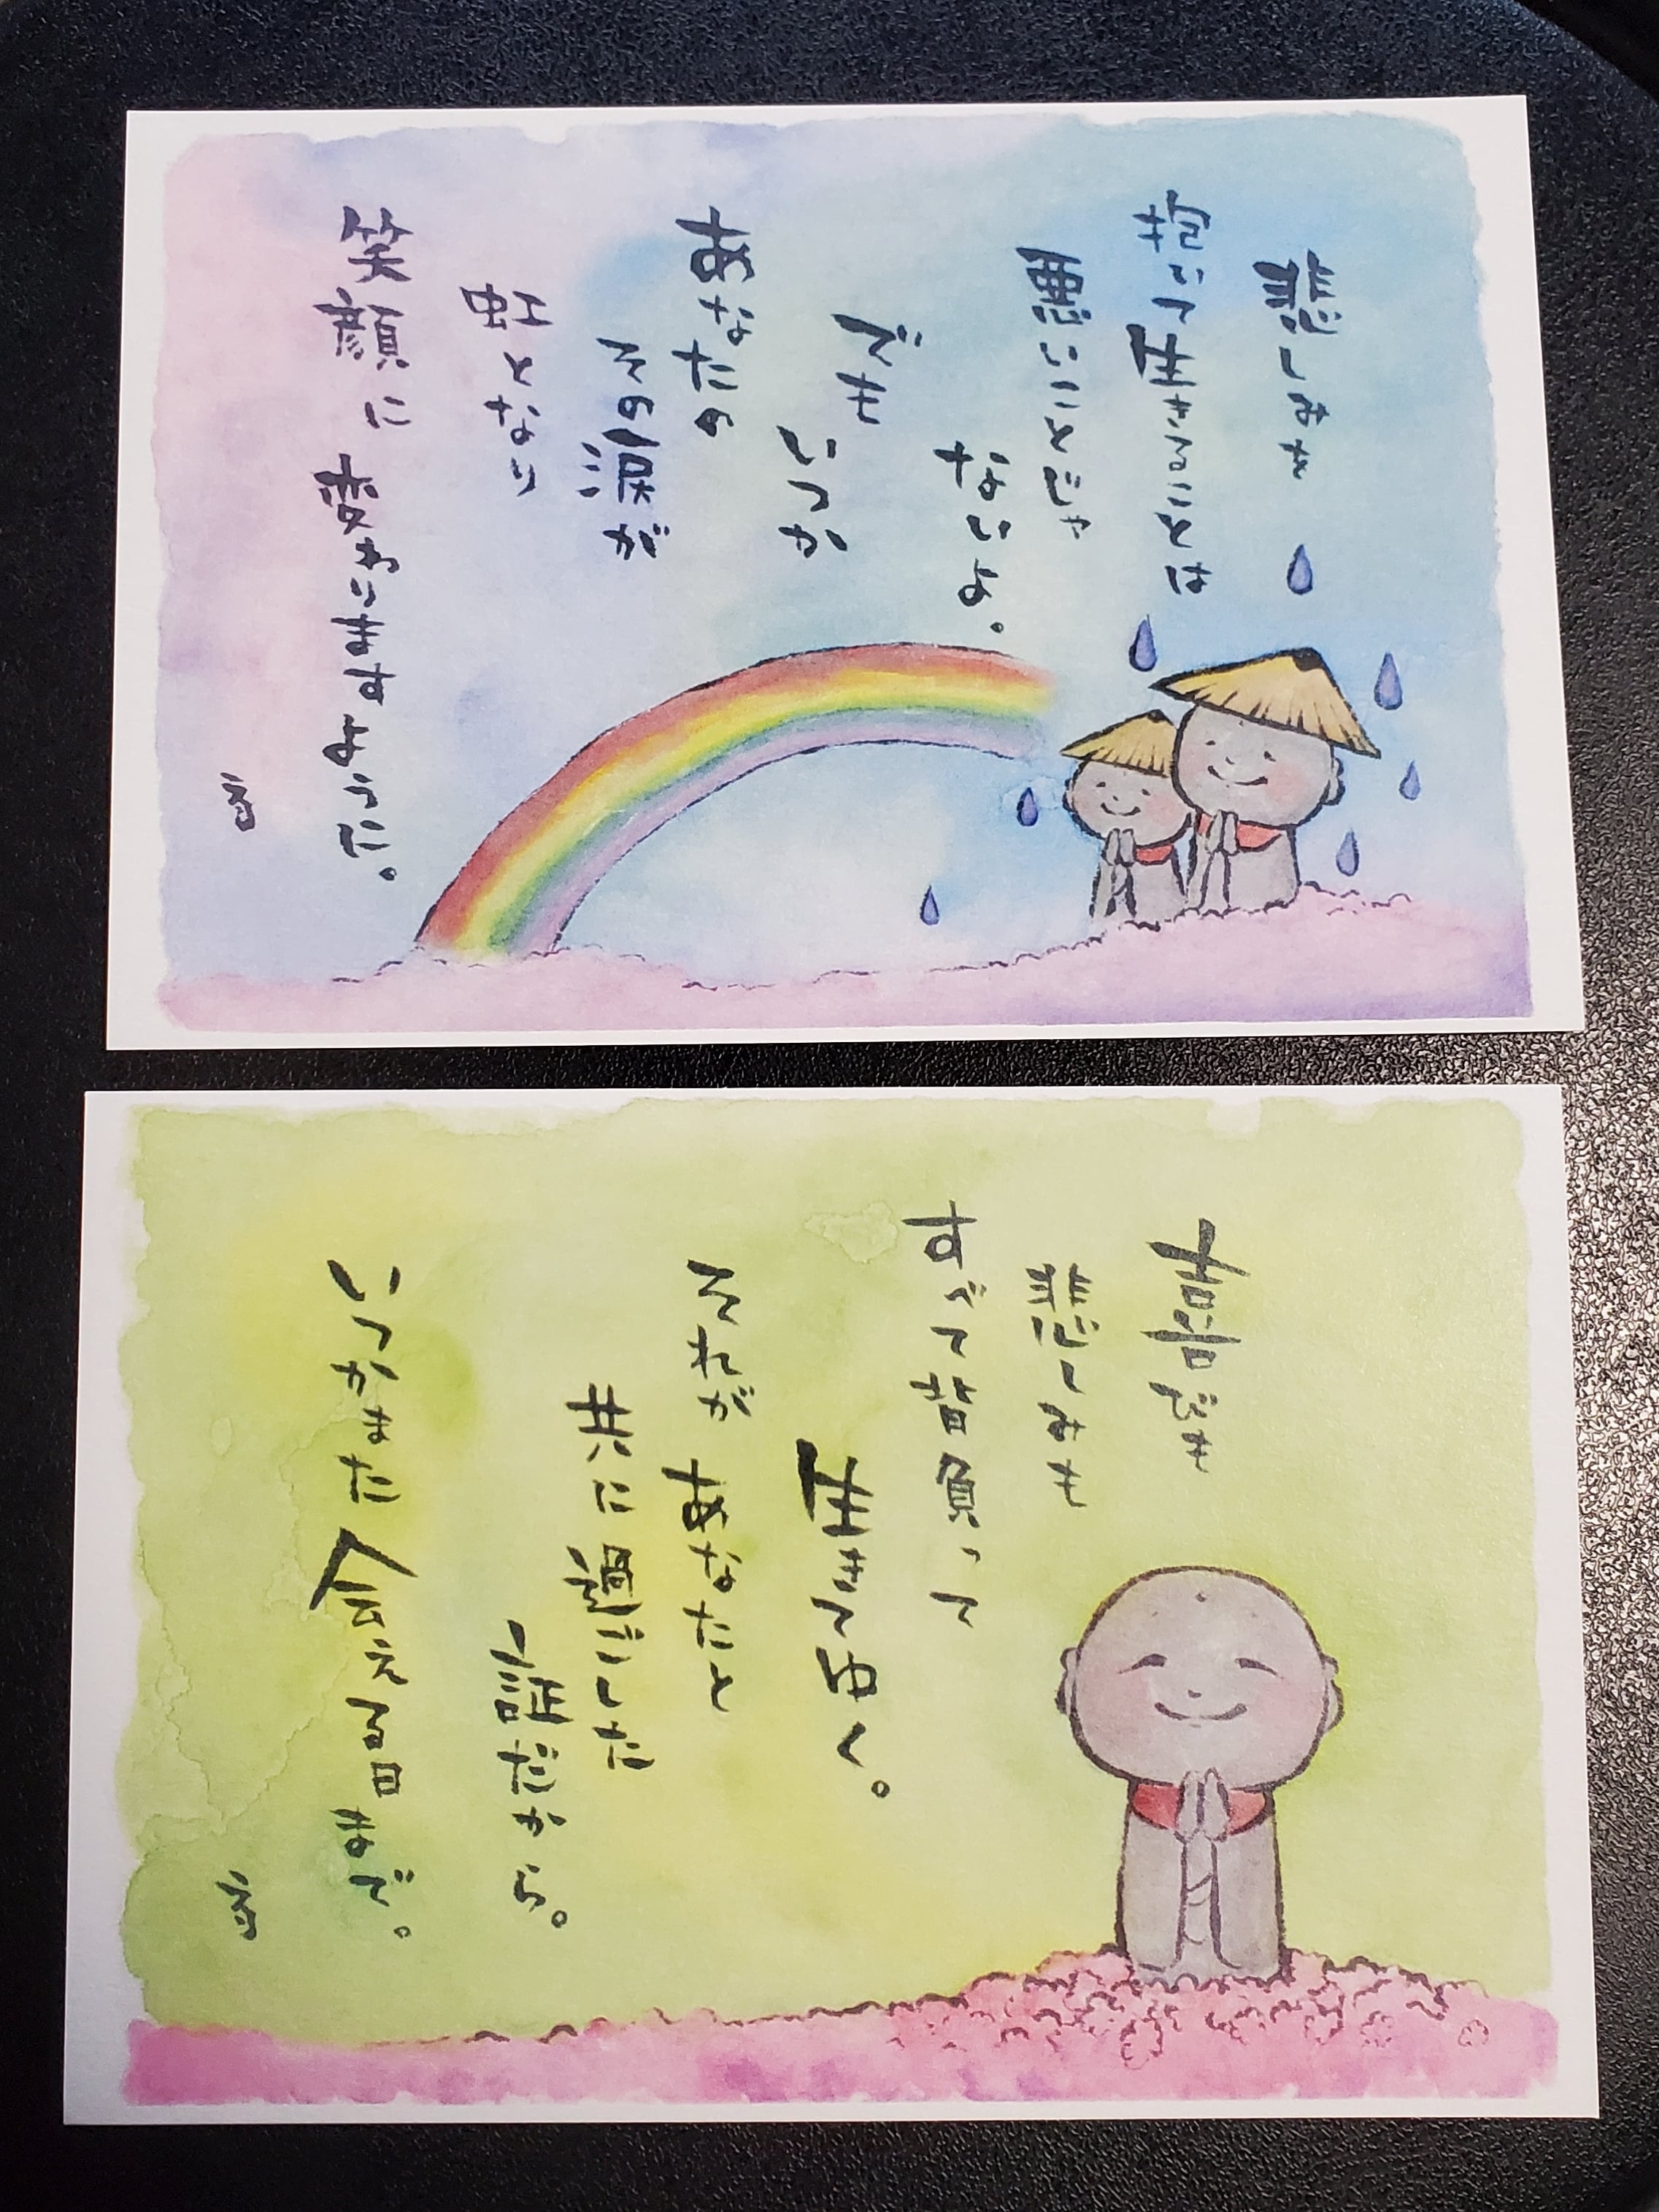 悲しみを
抱いて生きることは
悪いことじゃ
ないよ。
でも
いつか
あなたの
その涙が
虹となり
笑顔に変わりますように。
喜びも
悲しみも
すべて背負って
生きてゆく。
それがあなたと
共に過ごした
証だから。
いつかまた会える日まで。